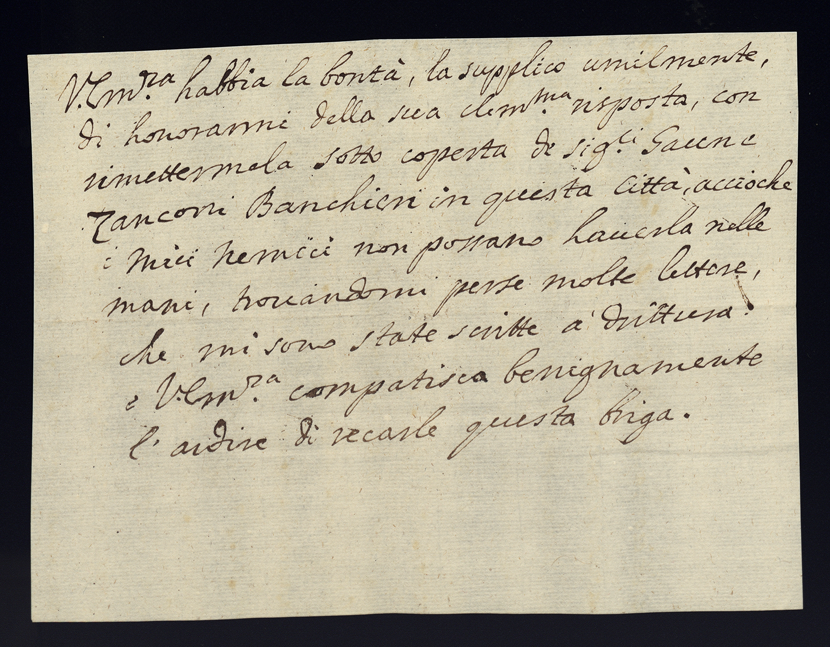 V. Em.za habbia la bontà, la supplico umilmente,
di honorarmi della sua clem.ma risposta, con
rimettermela sotto coperta de sig.ri
Zanconi Banchieri in questa Città, accioche
i miei nemici non possano haverla nelle
mani, trovandomi perse molte lettere,
che mi sono state scritte a drittura.
e V. Em.za compatisca benignamente
l'ardire di recarle questa briga.